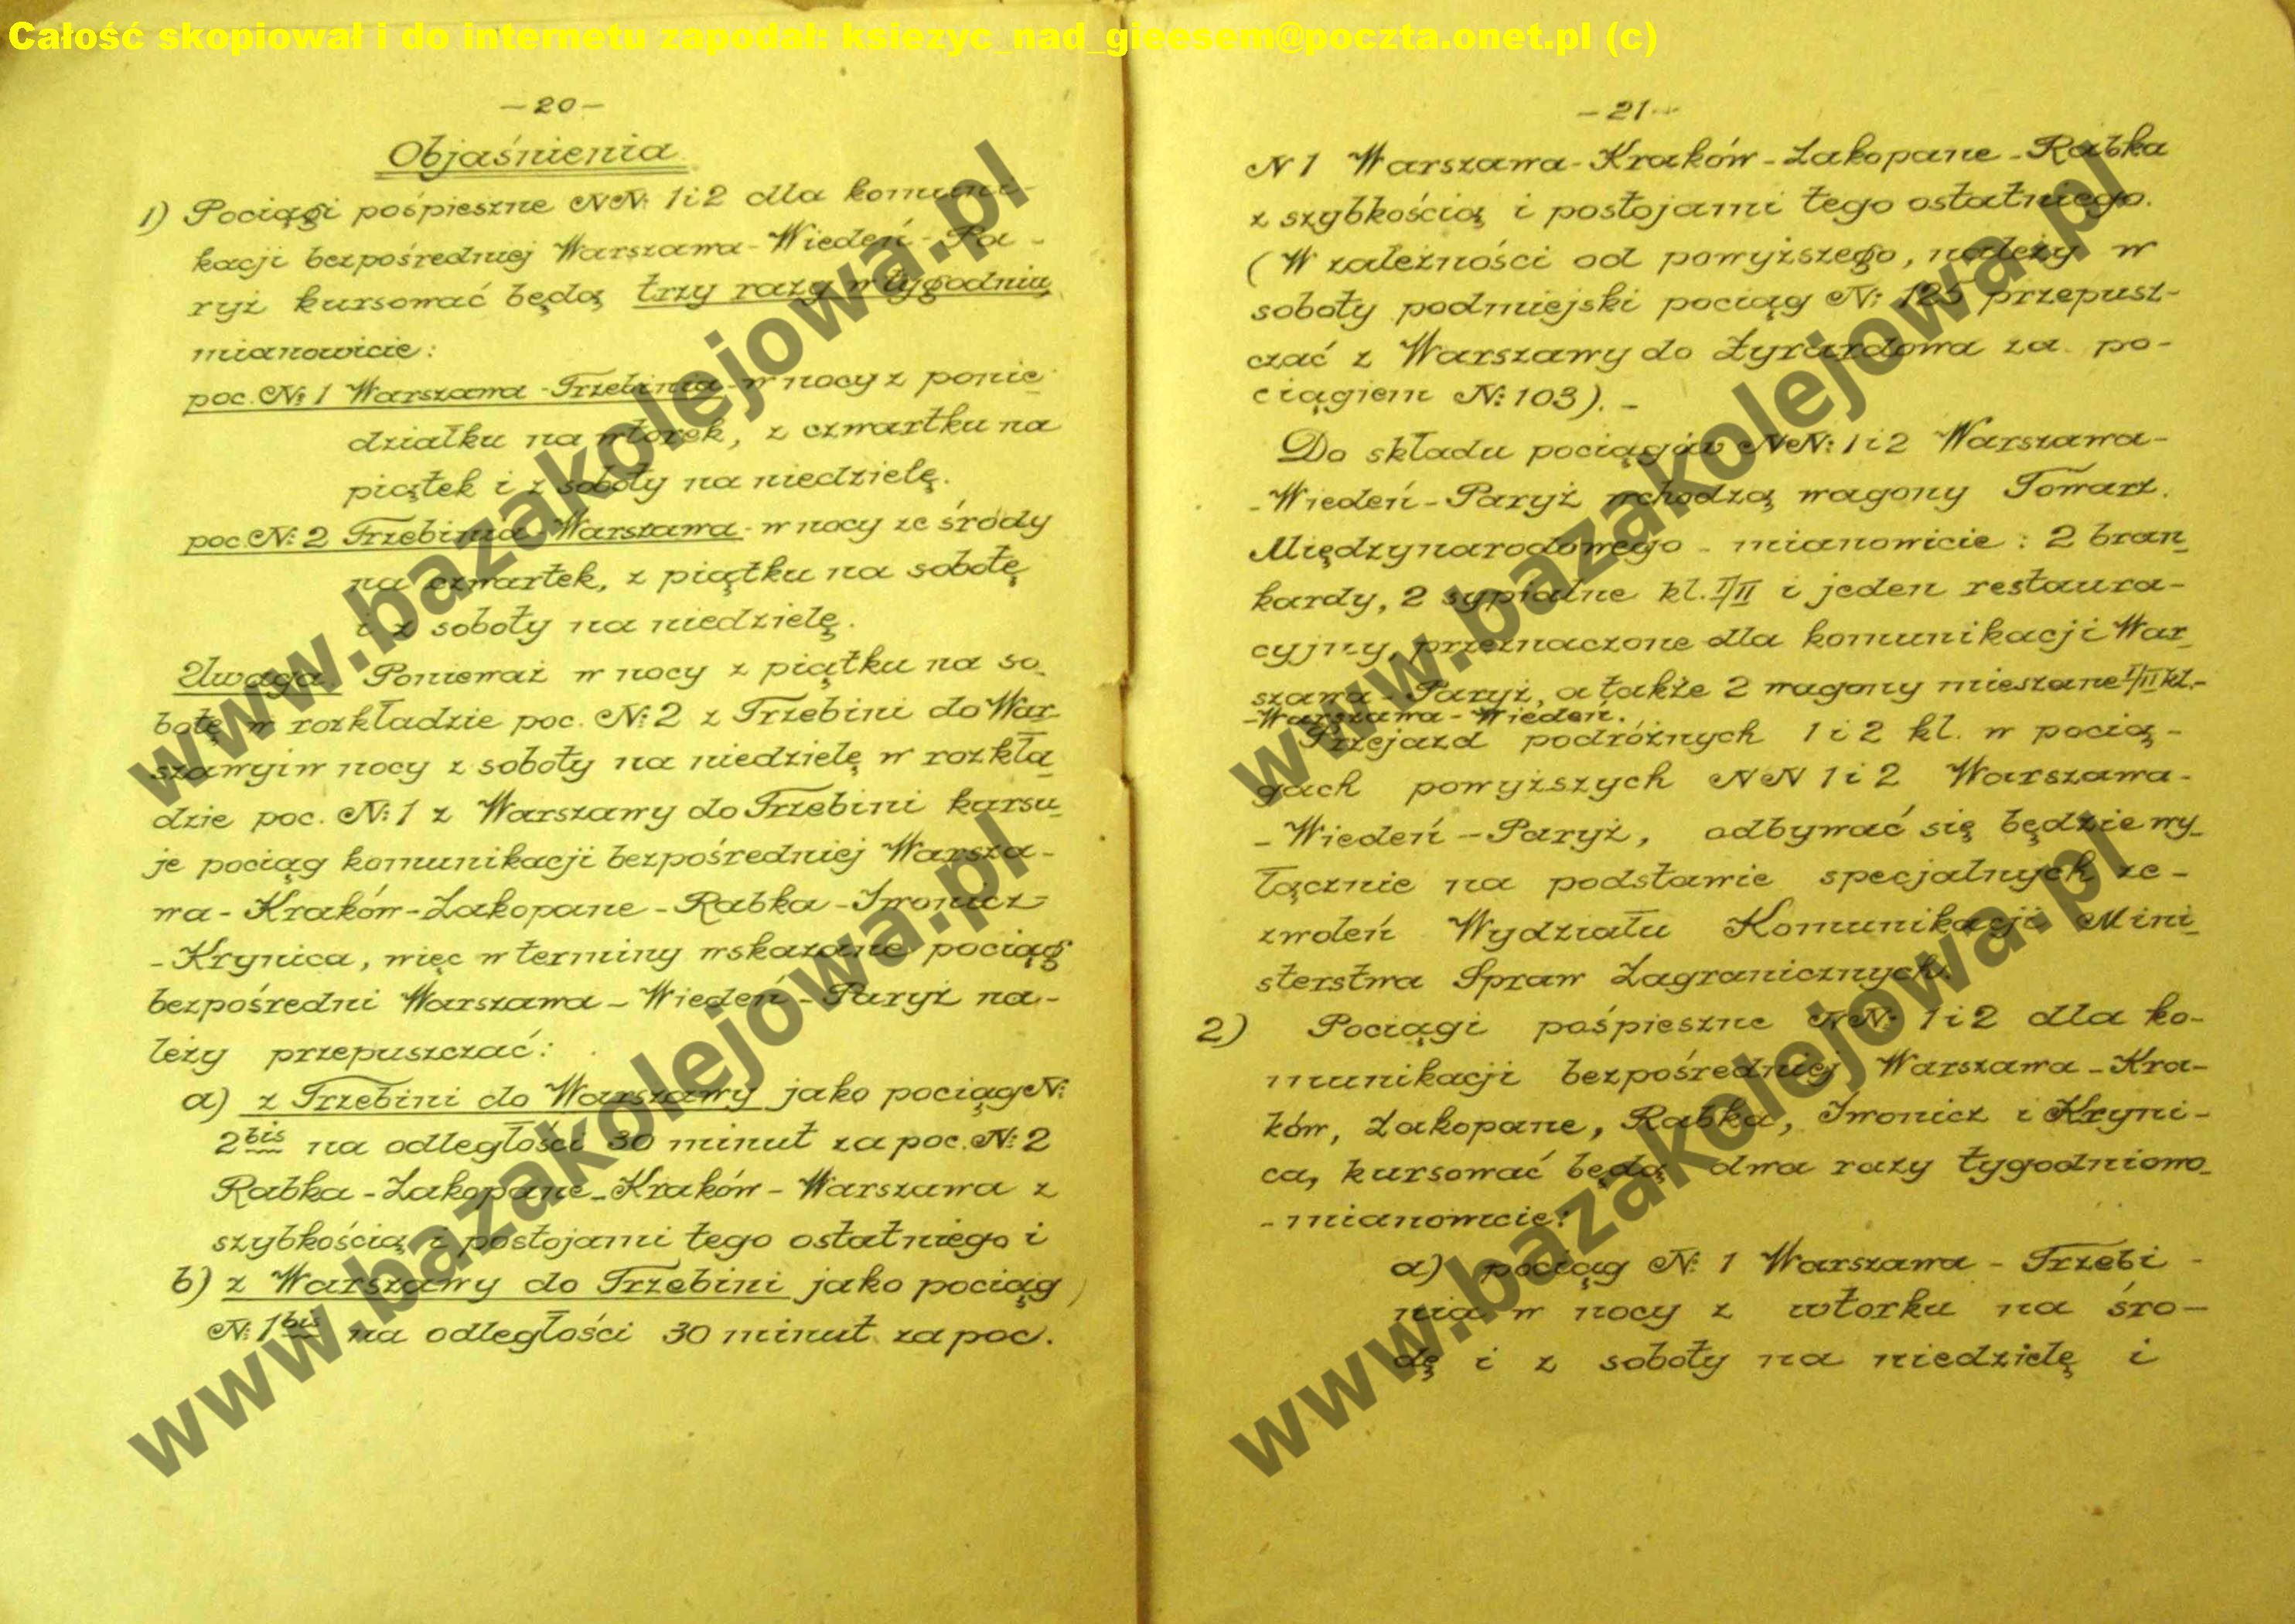 Całość skopiował i do internetu zapodał: ksiezyc_nad_gieesem@poczta.onet.pl (c)
-20-
Objaśnienia
1) Pociągi pośpieszne NN: 1 i 2 dla komuni-
kacji bezpośredniej Warszawa-Wiedeń-Pa-
ryż kursować będą trzy razy w tygodniu
mianowicie:
poc. N: 1 Warszawa-Trzebinia - w nocy z ponie-
działku na wtorek, z czwartku na
piątek i z soboty na niedzielę.
poc. N: 2 Trzebinia Warszawa - w nocy ze środy
na czwartek, z piątku na sobotę
i z soboty na niedzielę.
Uwaga. Ponieważ w nocy z piątku na so-
botę w rozkładzie poc. N: 2 z Trzebini do War-
szawy i w nocy z soboty na niedzielę w rozkła-
dzie poc. N: 1 z Warszawy do Trzebini kursu-
je pociąg komunikacji bezpośredniej Warsza-
wa-Kraków-Zakopane-Rabka-Iwonicz-
-Krynica, więc w terminy wskazane pociąg
bezpośredni Warszawa-Wiedeń-Paryż na-
leży przepuszczać:
a) z Trzebini do Warszawy jako pociąg N:
2 bis na odległości 30 minut za poc. N: 2
Rabka-Zakopane-Kraków-Warszawa z
szybkością i postojami tego ostatniego i
b) z Warszawy do Trzebini jako pociąg
N: 1 bis na odległości 30 minut za poc.
-21-
N 1 Warszawa-Kraków-Zakopane-Rabka
z szybkością i postojami tego ostatniego.
(W zależności od powyższego, należy w
soboty podmiejski pociąg N: 125 przepusz-
czać z Warszawy do Żyrardowa za po-
ciągiem N: 103). -
Do składu pociągów NN: 1 i 2 Warszawa-
-Wiedeń-Paryż wchodzą wagony Towarz.
Międzynarodowego - mianowicie: 2 bran-
kardy, 2 sypialne kl. I/II i jeden restaura-
cyjny, przeznaczone dla komunikacji War-
szawa-Paryż, a także 2 wagony mieszane I/II kl.-
-Warszawa-Wiedeń.
Przejazd podróżnych 1 i 2 kl. w pocią-
gach powyższych NN 1 i 2 Warszawa-
-Wiedeń-Paryż, odbywać się będzie wy-
łącznie na podstawie specjalnych ze-
zwoleń Wydziału Komunikacji Mini-
sterstwa Spraw Zagranicznych.
2) Pociągi pośpieszne NN: 1 i 2 dla ko-
munikacji bezpośredniej Warszawa-Kra-
ków, Zakopane, Rabka, Iwonicz i Kryni-
ca, kursować będą dwa razy tygodniowo-
-mianowicie:
a) pociąg N: 1 Warszawa - Trzebi-
nia w nocy z wtorku na śro-
dę i z soboty na niedzielę i
www.bazakolejowa.pl
www.bazakolejowa.pl
www.bazakolejowa.pl
www.bazakolejowa.pl